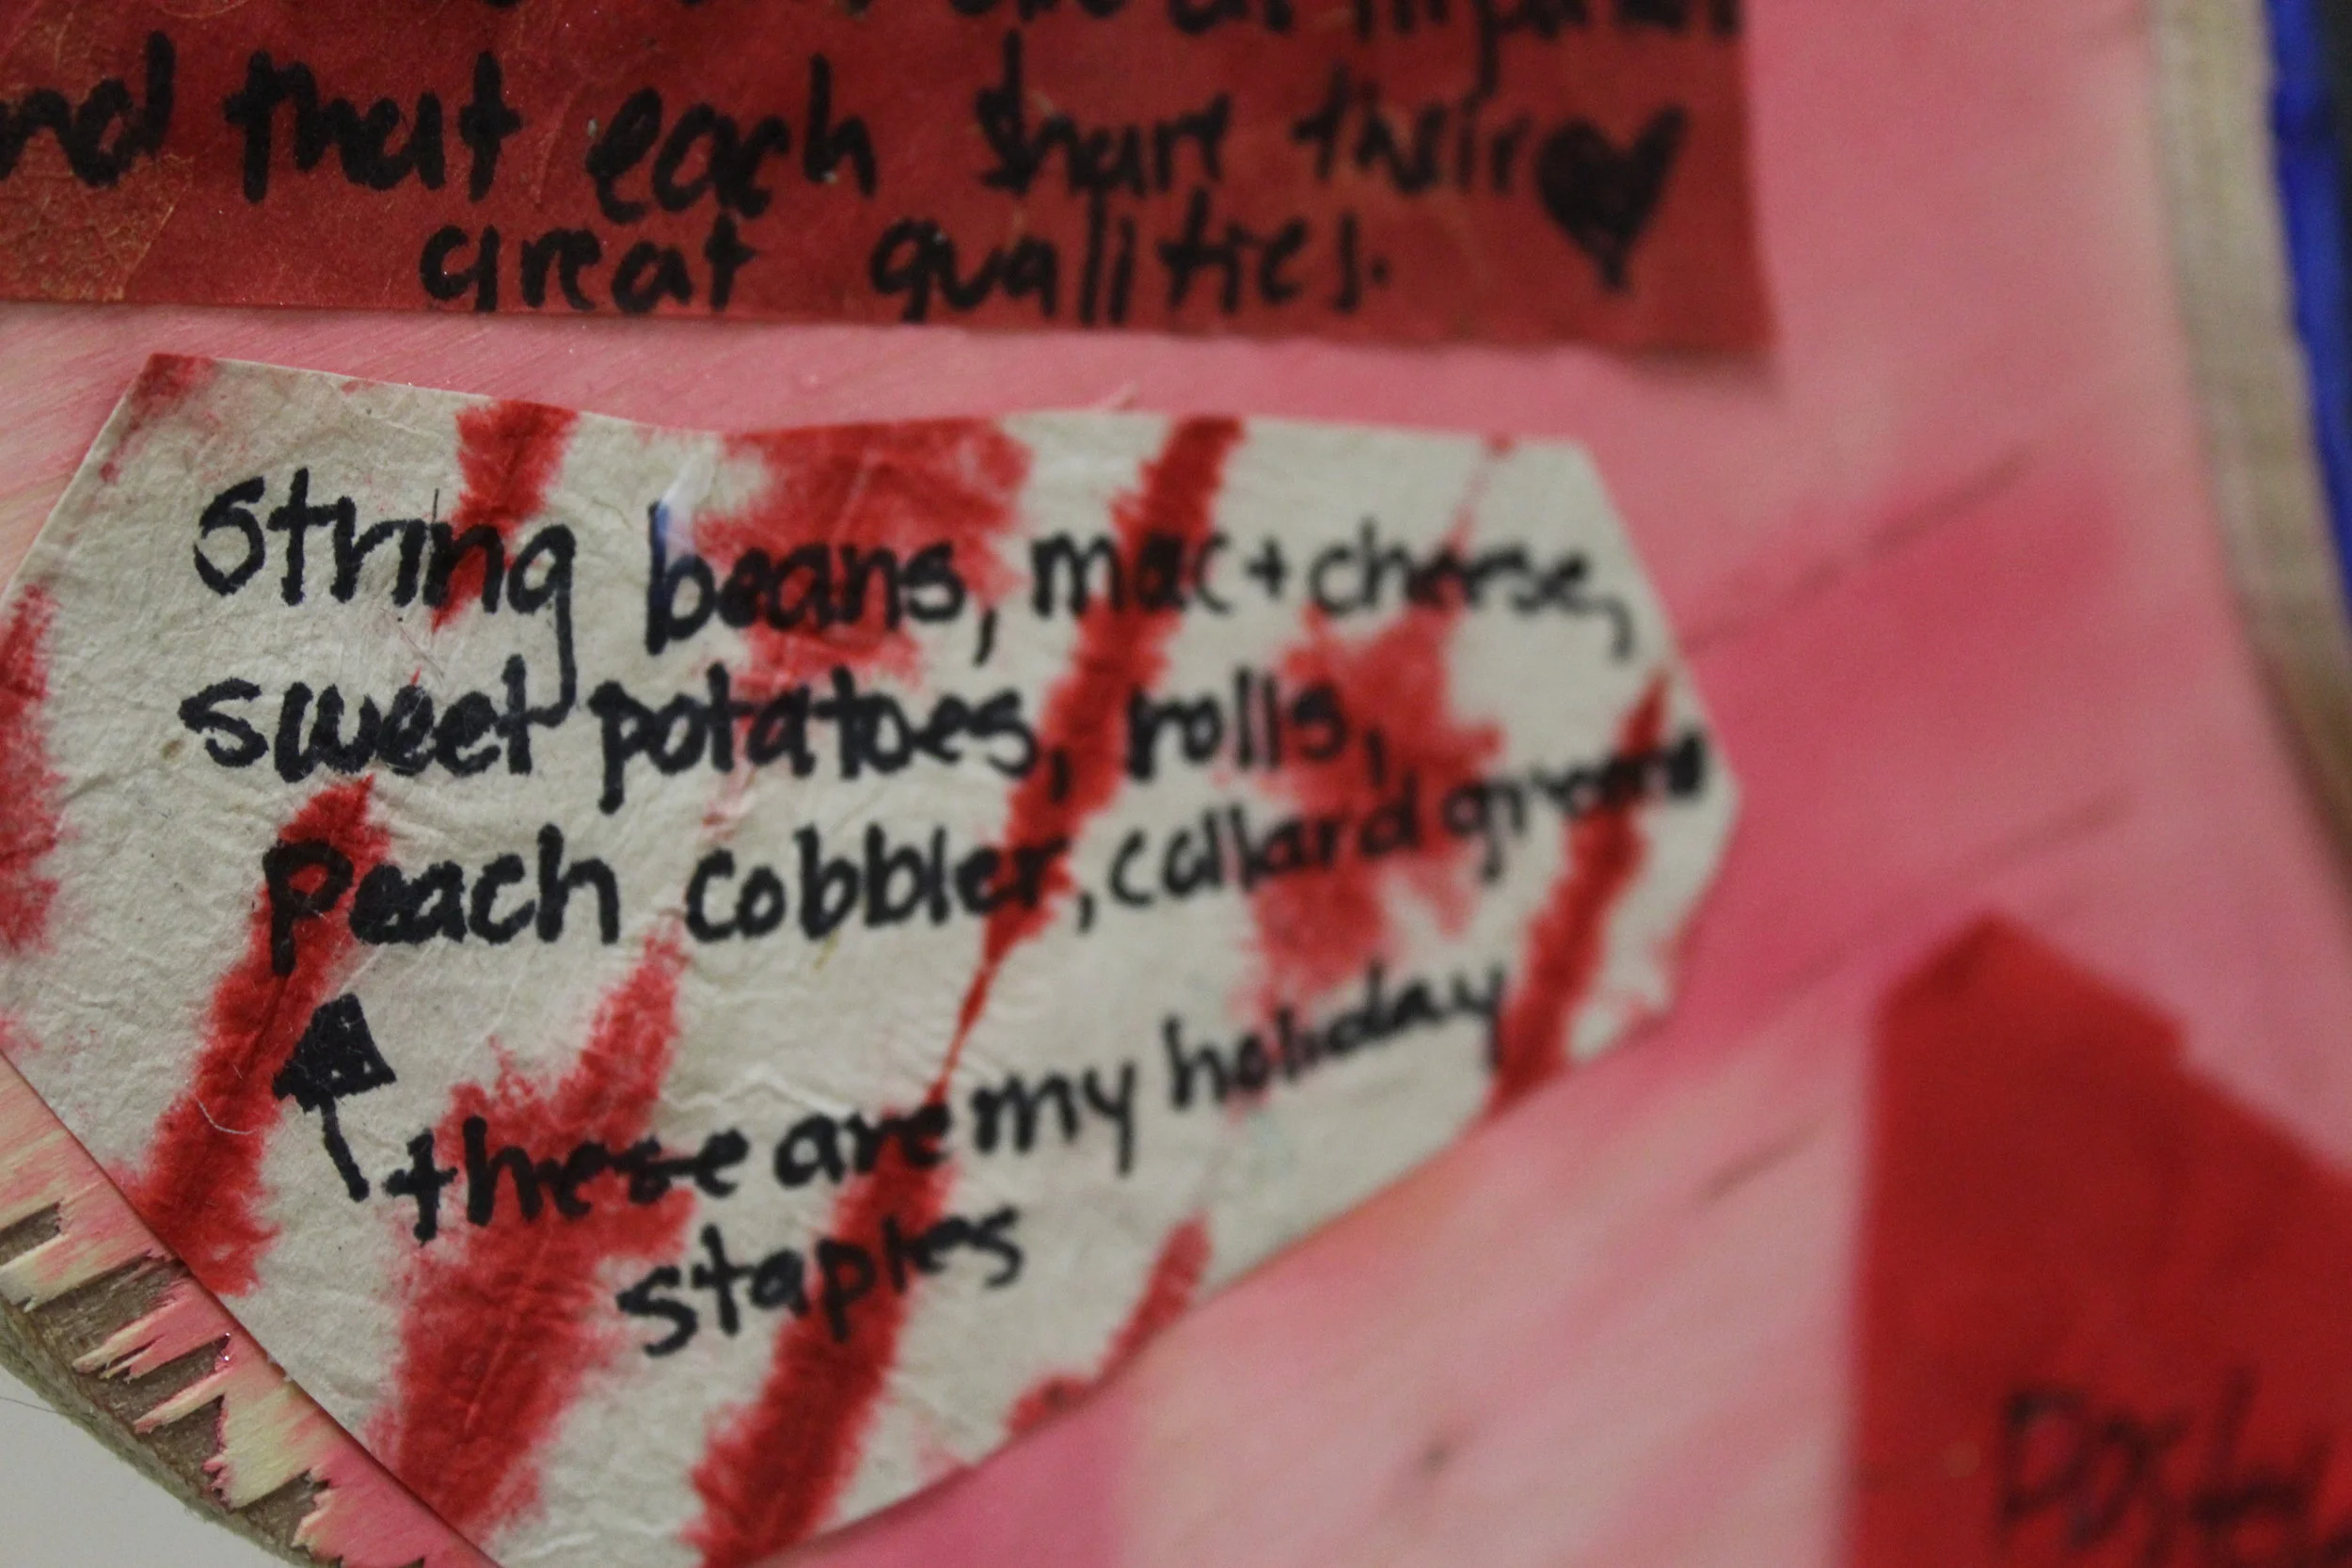 that each share their
great qualities.
String beans, mac + cheese,
sweet potatoes, rolls,
Peach cobbler, collard greens
these are my holiday
staples